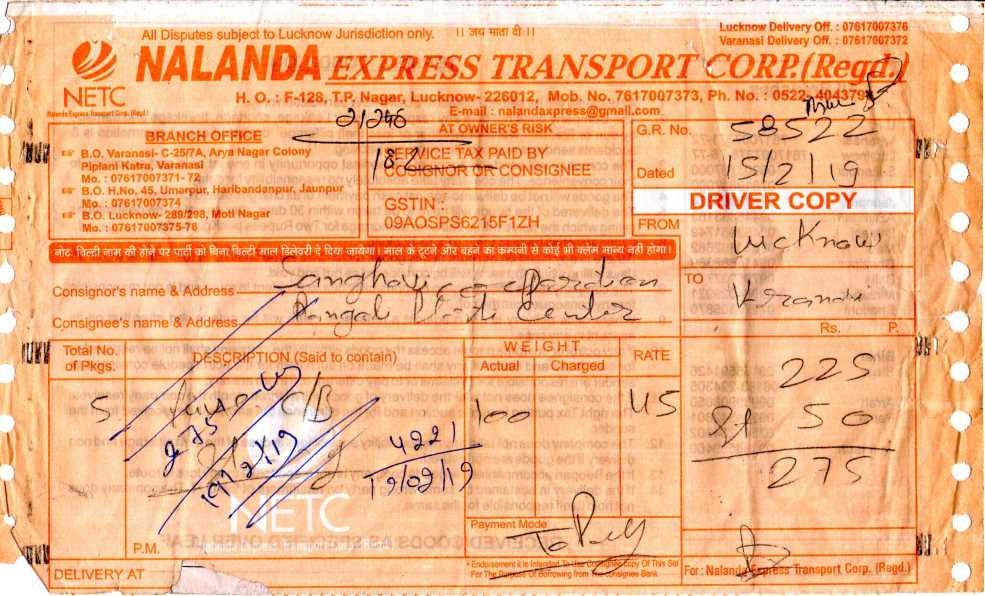 All Disputes subject to Lucknow Jurisdiction only. ।। जय माता दी ।।
Lucknow Delivery Off. : 07617007376
Varanasi Delivery Off. : 07617007372
NALANDA EXPRESS TRANSPORT CORP.(Regd.)
NETC
Nalanda Express Transport Corp. (Regd.)
H. O. : F-128, T.P. Nagar, Lucknow- 226012, Mob. No. 7617007373, Ph. No. : 0522-
E-mail : nalandaxpress@gmail.com
21246
182
BRANCH OFFICE
B.O. Varanasi- C-25/7A, Arya Nagar Colony
Piplani Katra, Varanasi
Mo. : 07617007371- 72
B.O. H.No. 45, Umarpur, Haribandanpur, Jaunpur
Mo. : 07617007374
B.O. Lucknow- 289/298, Moti Nagar
Mo. : 07617007375-76
AT OWNER'S RISK
SERVICE TAX PAID BY
COSIGNOR OR CONSIGNEE
GSTIN :
09AOSPS6215F1ZH
G.R. No. 58522
Dated 15/2/19
DRIVER COPY
FROM
Lucknow
नोट: बिल्टी नाम की होने पर पार्टी को बिना बिल्टी माल डिलेवरी दे दिया जायेगा। माल के टूटने और बहने का कम्पनी से कोई भी क्लेम मान्य नहीं होगा।
TO
Consignor's name & Address
Consignee's name & Address Center
Rs. P.
Total No.
of Pkgs.
DESCRIPTION (Said to contain)
WEIGHT
Actual Charged
RATE
5 C/B 100 45
225
50
275
275
19/2/19
4221
19/02/19
NETC
Payment Mode
To Pay
P.M.
DELIVERY AT
* Endorsement it is Intended To Use Consignee Copy Of This Set
For The Purpose Of Borrowing from The Consignee Bank
For : Nalanda Express Transport Corp. (Regd.)